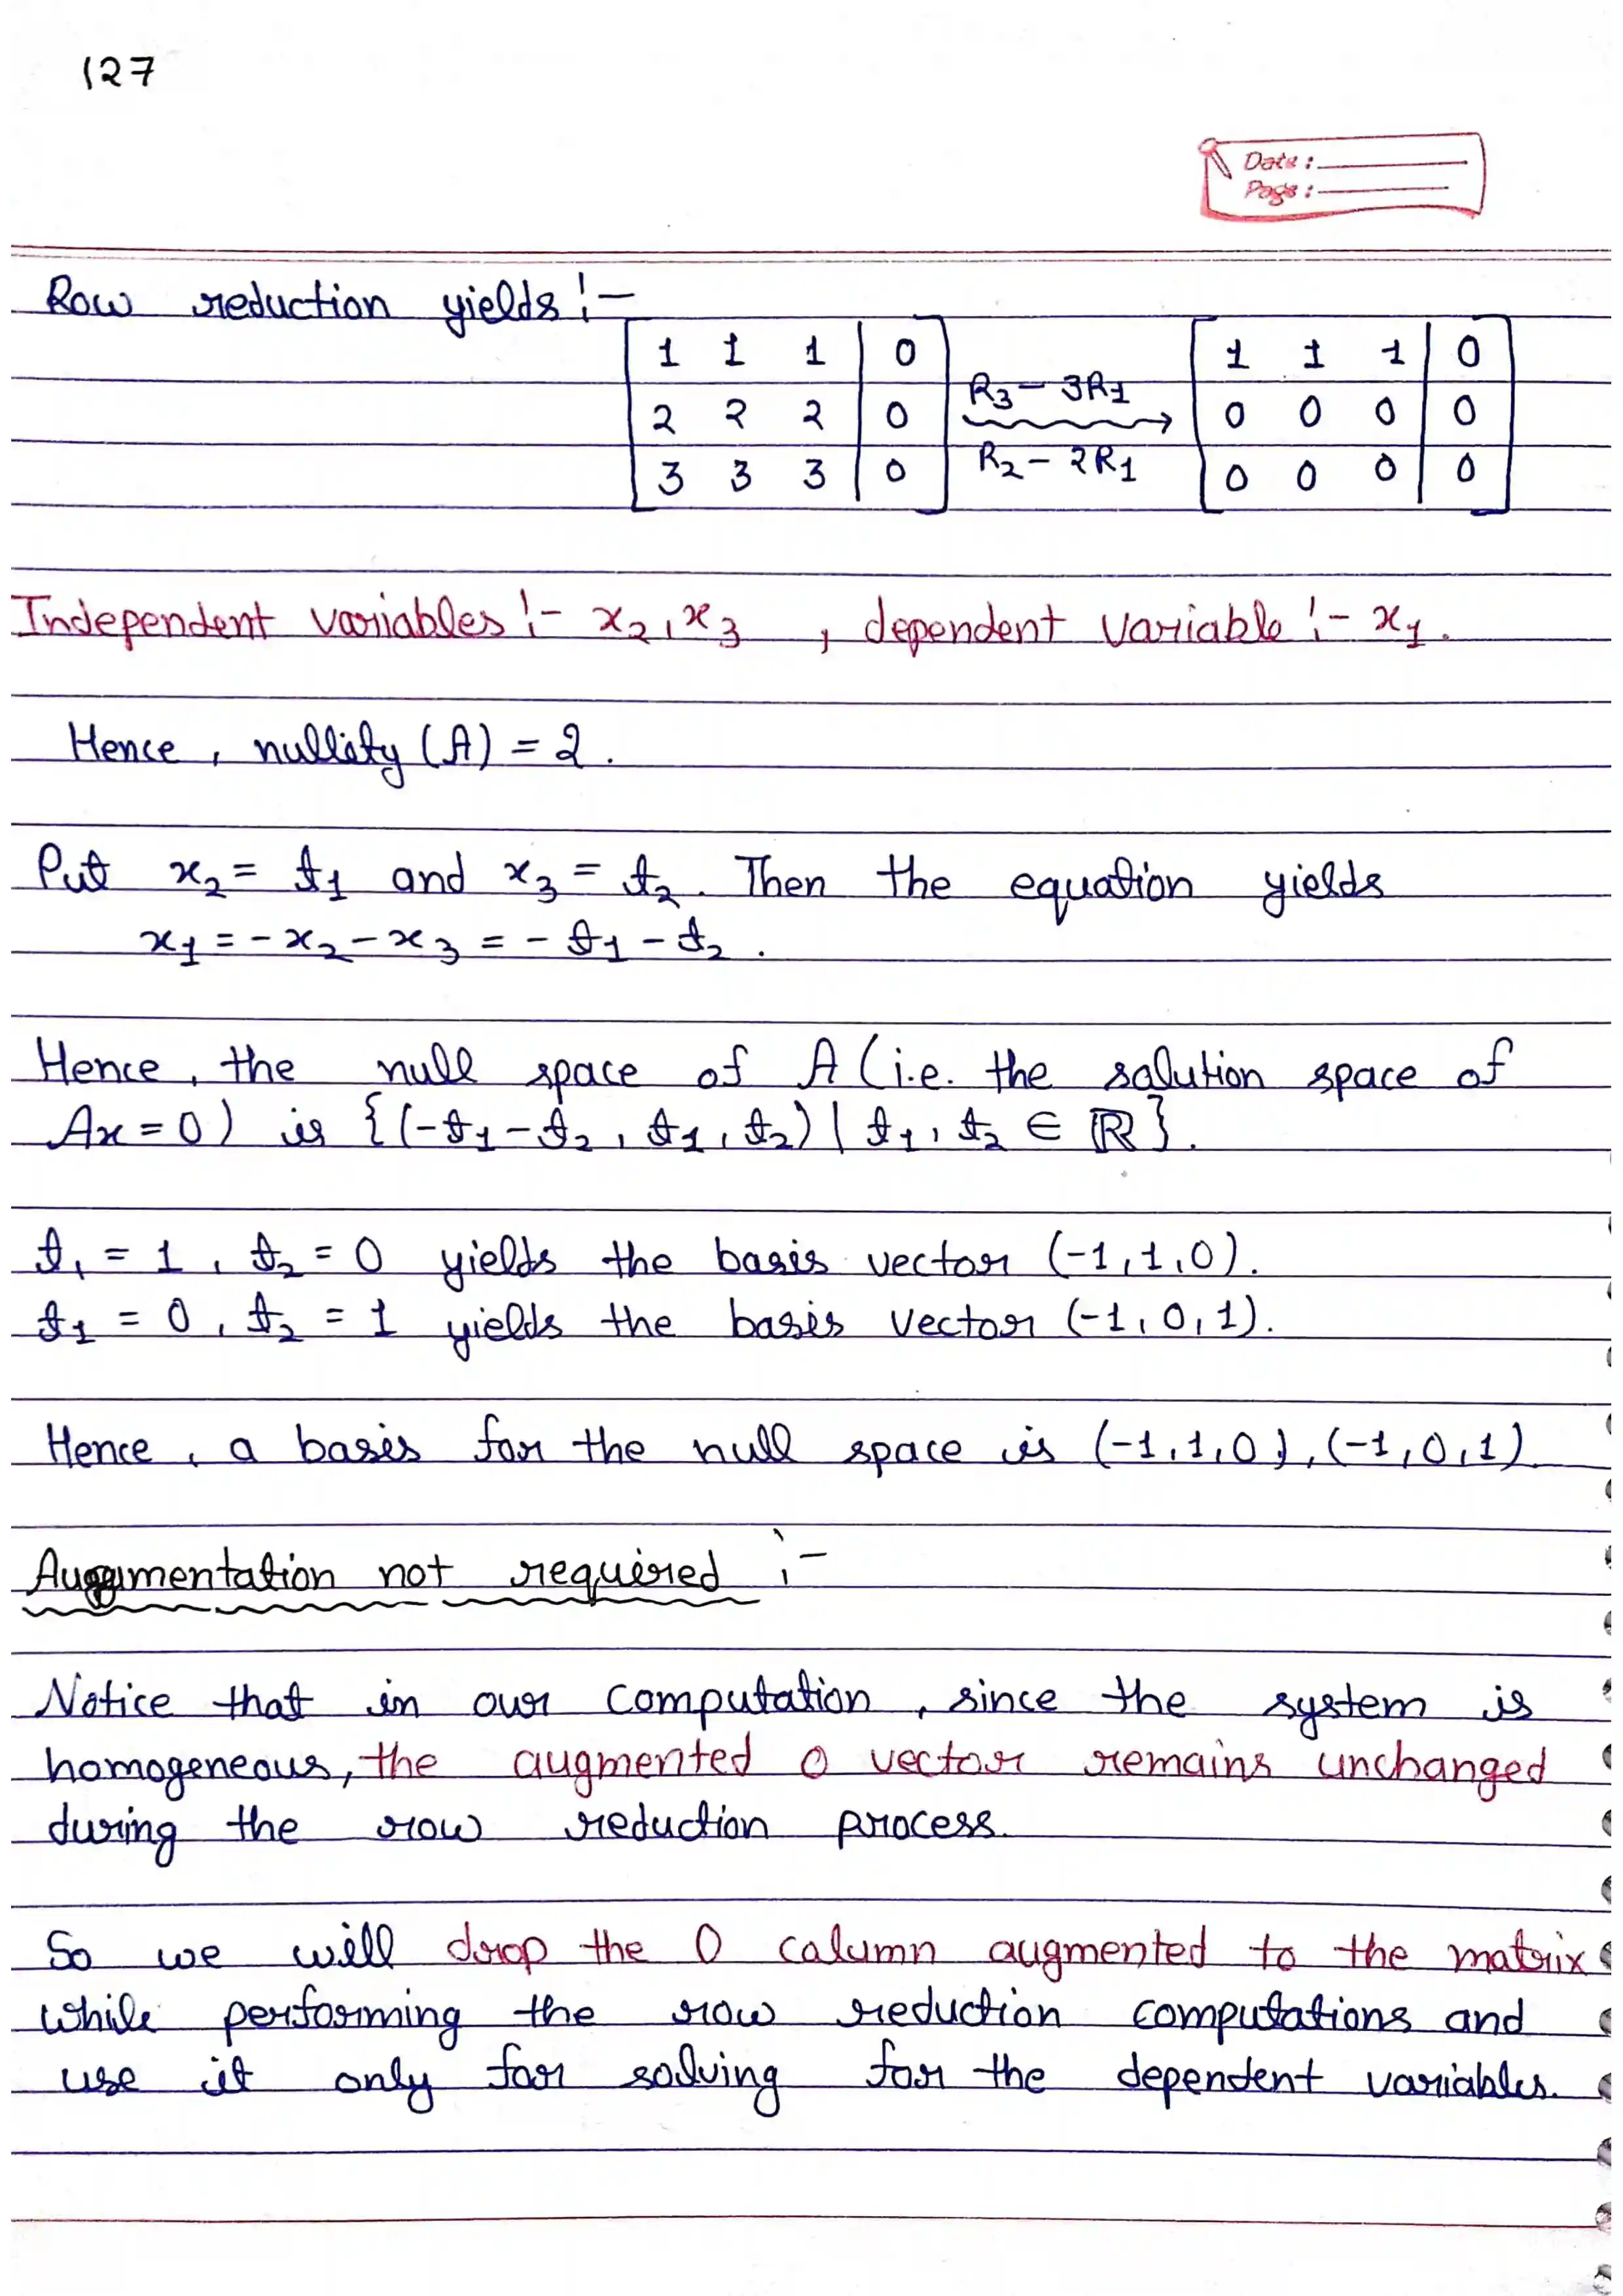 127
Date :
Page :
Row reduction yields :-
[ 1 1 1 | 0 ] [ 1 1 1 | 0 ]
[ 2 2 2 | 0 ] R3 - 3R1 → R2 - 2R1 [ 0 0 0 | 0 ]
[ 3 3 3 | 0 ] [ 0 0 0 | 0 ]
Independent variables :- x2, x3 , dependent variable :- x1.
Hence, nullity (A) = 2.
Put x2 = t1 and x3 = t2. Then the equation yields
x1 = -x2 - x3 = - t1 - t2.
Hence, the null space of A (i.e. the solution space of
Ax = 0) is {(-t1 - t2, t1, t2) | t1, t2 ∈ ℝ}.
t1 = 1, t2 = 0 yields the basis vector (-1,1,0).
t1 = 0, t2 = 1 yields the basis vector (-1,0,1).
Hence, a basis for the null space is (-1,1,0), (-1,0,1)
Augumentation not required :-
Notice that in our computation, since the system is
homogeneous, the augmented 0 vector remains unchanged
during the row reduction process.
So we will drop the 0 column augmented to the matrix
while performing the row reduction computations and
use it only for solving for the dependent variables.